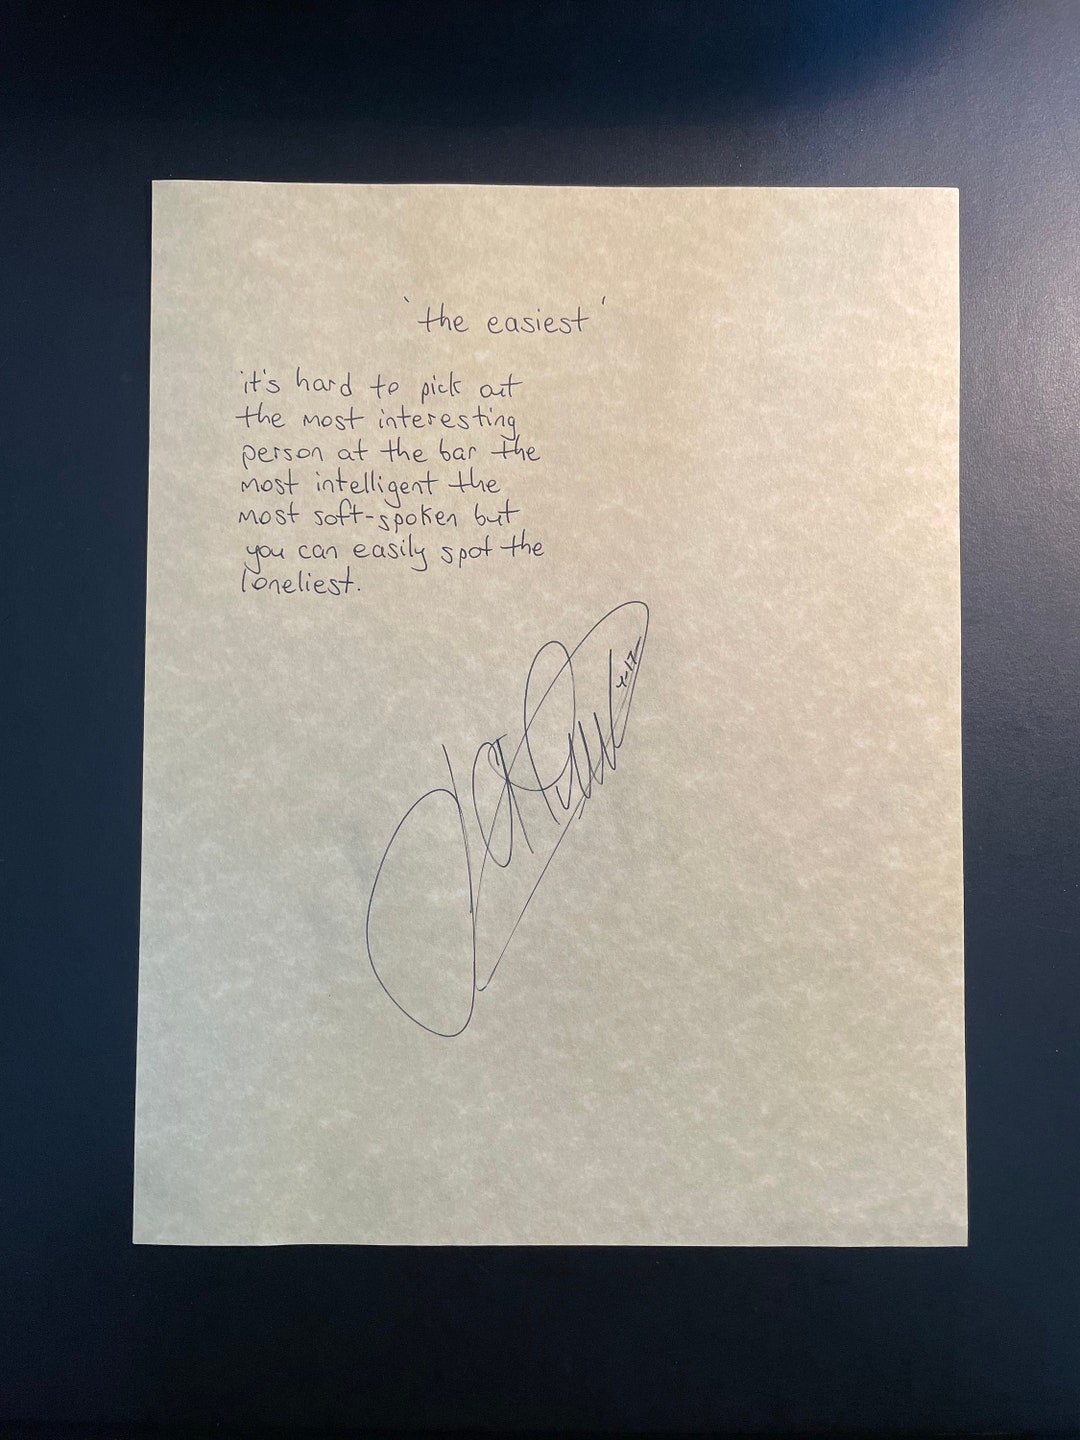 'the easiest'
it's hard to pick out
the most interesting
person at the bar the
most intelligent the
most soft-spoken but
you can easily spot the
loneliest.